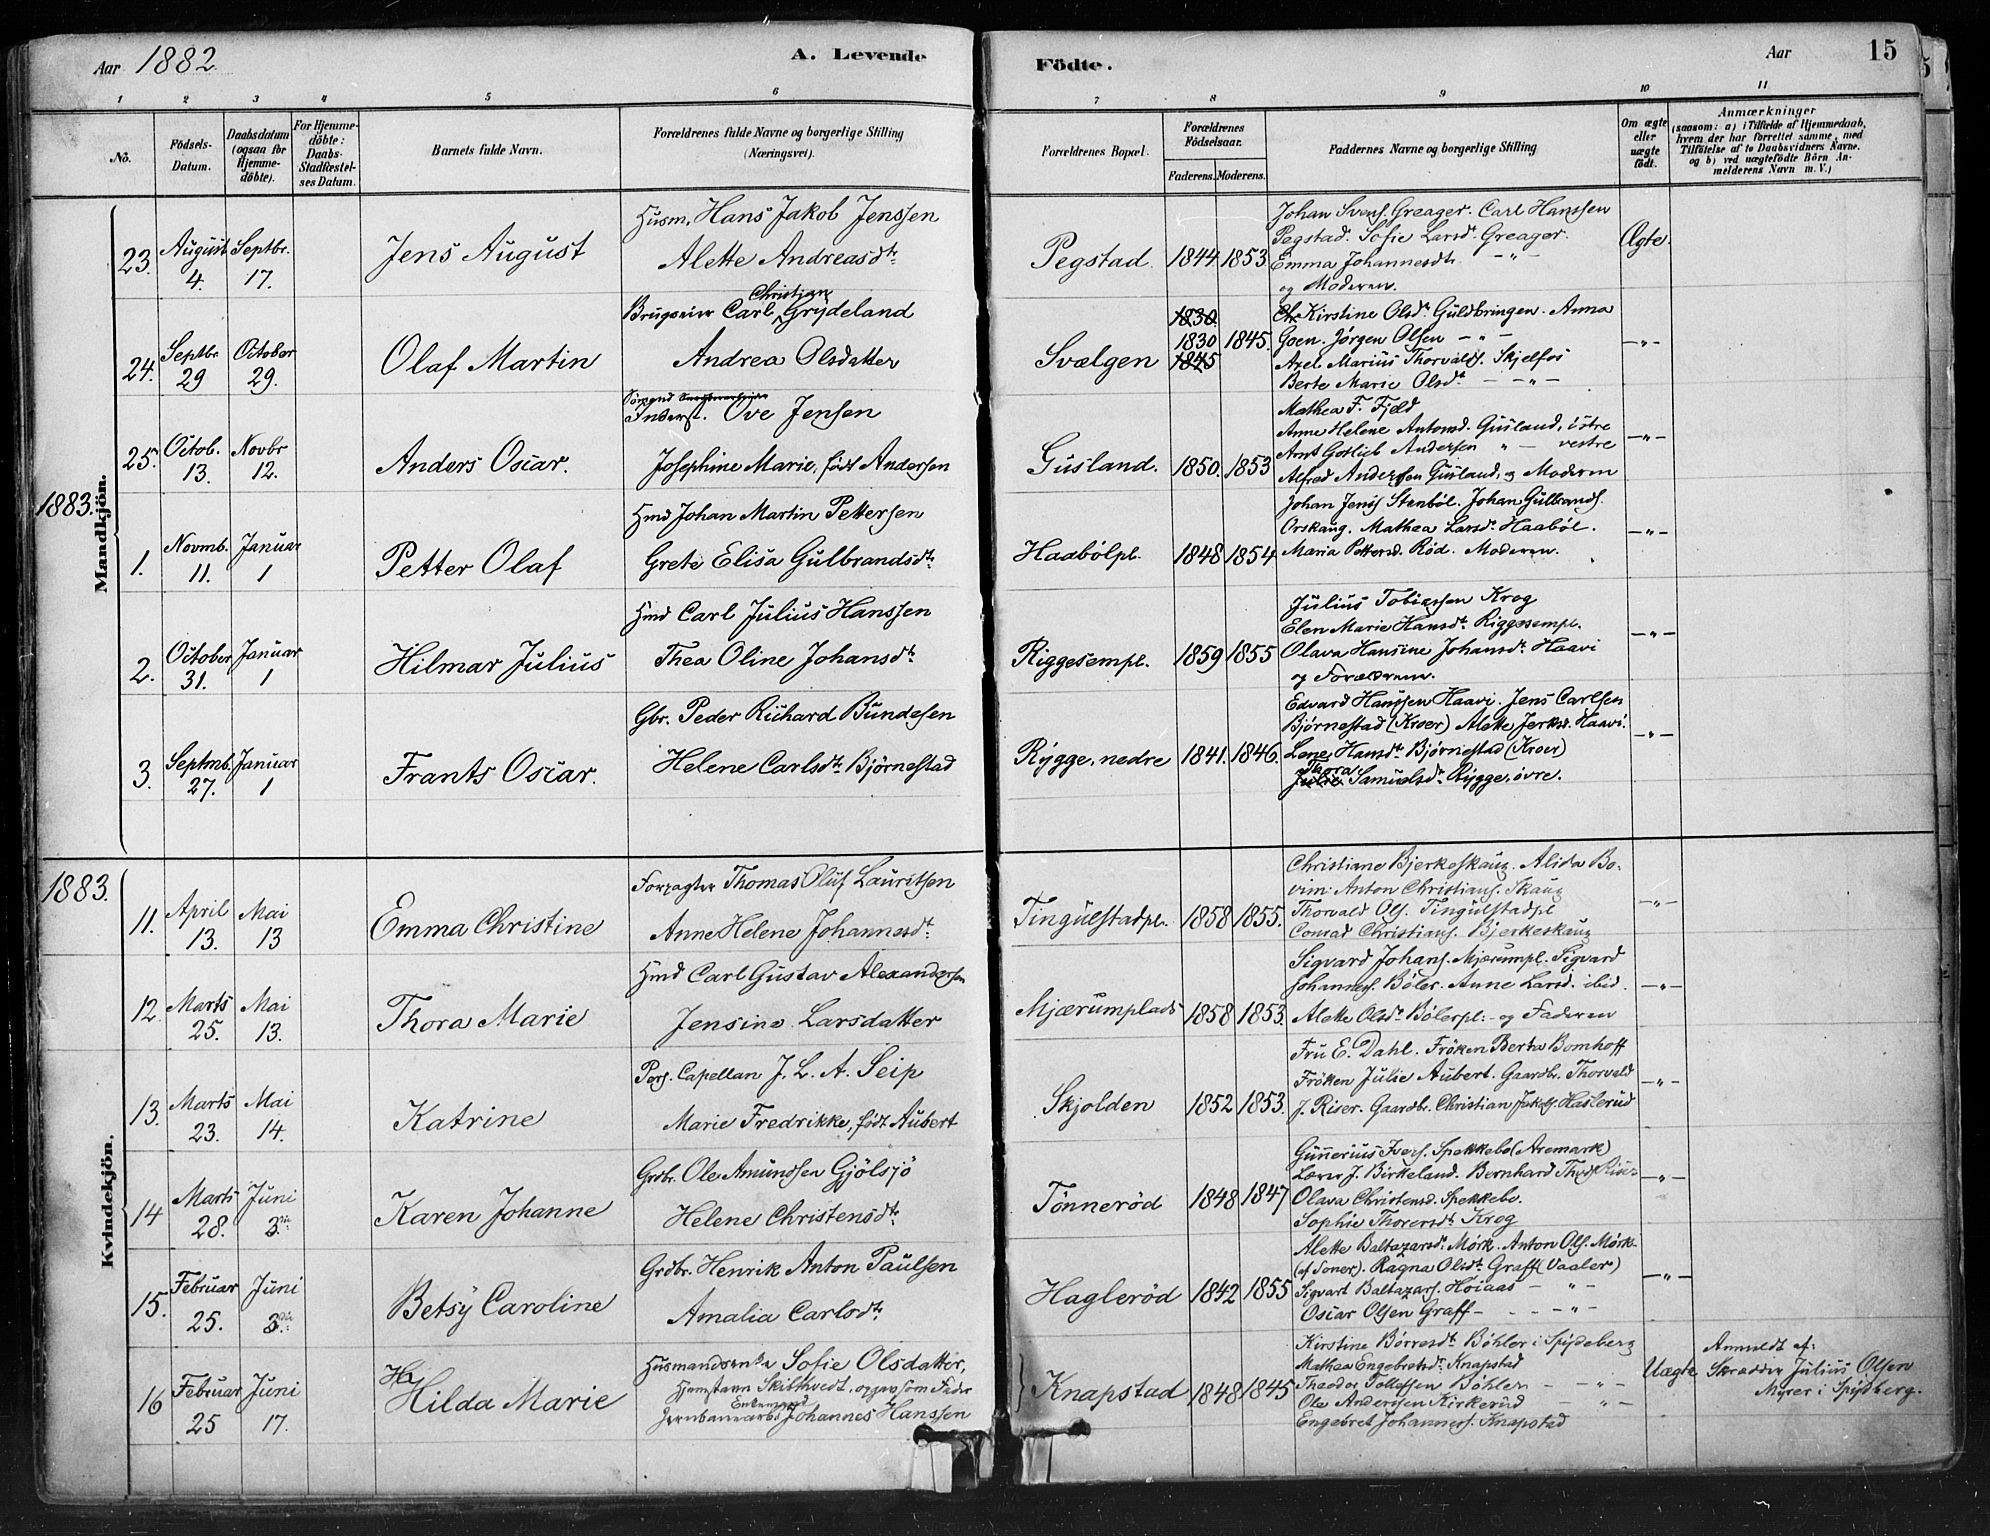 Aar 1882 A. Levende Födte. Aar 15
1 2 3 4 5 6 7 8 9 10 11
Nô.
Födsels-Datum.
Daabsdatum (ogsaa for Hjemme-döbte).
For Hjemme-döbte: Daabs-Stadfæstel-ses Datum.
Barnets fulde Navn.
Forældrenes fulde Navne og borgerlige Stilling (Næringsvei).
Forældrenes Bopæl.
Forældrenes Födselsaar.
Faderens. Moderens.
Faddernes Navne og borgerlige Stilling
Om ægte eller uægte födt.
Anmærkninger
(saasom: a) i Tilfælde af Hjemmedaab, hvem der har forrettet samme, med Tilföielse af to Daabsvidners Navne. og b) ved uægtefödte Börn Anmelderens Navn m.V.)
Mandkjön.
23. August 4. Septbr. 17. Jens August
Husm. Hans Jakob Jenssen
Alette Andreasdtr
Pegstad 1844 1853
Johan Svens. Greager. Carl Hanssen
Pegstad. Sofie Larsdr Greager.
Emma Johannesdtr - " -
og Moderen.
Ægte.
24. Septbr. 29 October 29. Olaf Martin
Brugseier Carl Christian Grydeland
Andrea Olsdatter
Svælgen 1830. 1830 1845 1845.
Kirstine Olsdr Guldbringen. Anna
Goen. Jørgen Olsen - " -
Axel Marius Thorvalds. Skjelfos
Berte Marie Olsdr - " -
- " -
25. Octob. 13. Novbr 12. Anders Oscar.
Inderst. Ove Jensen
Josephine Marie, født Andersen
Gusland. 1850. 1853
Mathea F. Fjeld
Anne Helene Antonsd. Gusland, østre
Arnt Gotlieb Andersen " - vestre
Alfred Andersen Gusland, og Moderen
- " -
1883.
1. Novmb. 11. Januar 1 Petter Olaf
Hmd Johan Martin Pettersen
Grete Elisa Gulbrandsdtr
Haabölpl. 1848 1854
Johan Jens Stenböl. Johan Gulbrands.
Orskaug. Mathea Larsdr Haaböl.
Maria Pettersd. Röd. Moderen.
- " -
2. October 31. Januar 1 Hilmar Julius
Hmd Carl Julius Hanssen
Thea Oline Johansdtr
Riggesempl. 1859 1855
Julius Tobiassen Krog
Elen Marie Hansdr Riggesempl.
Olava Hansine Johansdr Haavi
og Forældrene.
- " -
3. Septmb. 27. Januar 1 Frants Oscar.
Gbr. Peder Richard Bundesen
Helene Carlsdr Bjørnestad
Rygge, nedre 1841. 1846.
Edvard Hanssen Haavi. Jens Carlsen
Bjørnestad (Kroer) Alette Jerksd. Haavi.
Lene Hansdr Bjørnestad (Kroer)
Thora Samuelsdr Rygge, øvre.
- " -
1883.
Kvindekjön.
11. April 13. Mai 13 Emma Christine
Forpagter Thomas Oluf Lauritsen
Anne Helene Johannesdr
Tingulstadpl. 1858 1855.
Christiane Bjerkeskaug. Alida Bo-
vim. Anton Christians. Skaug
Thorvald Ols. Tingulstadpl
Conrad Christians. Bjerkeskaug
- " -
12. Marts 25. Mai 13. Thora Marie
Hmd Carl Gustav Alexandersen
Jensine Larsdatter
Mjærumplads 1858 1853.
Sigvard Johans. Mjærumpl. Sigvard
Johannes. Böler. Anne Larsd. ibid.
Alette Olsdr Bölerpl. og Faderen
- " -
13. Marts 23. Mai 14. Katrine
Pers. Capellan J. L. A. Seip
Marie Fredrikke, født Aubert
Skjolden 1852 1853.
Fru E. Dahl. Frøken Berta Bomhoff
Frøken Julie Aubert. Gaardbr. Thorvald
J. Riser. Gaardbr. Christian Jakobs. Haslerud
- " -
14 Marts 28. Juni 3die Karen Johanne
Grdbr. Ole Amundsen Gjølsjø
Helene Christensdtr
Tønnerød 1848 1847
Gunnerius Ivers. Spekkebo (Aremark)
Lærer J. Birkeland. Bernhard Thors. Riser
Olava Christensd. Spekkebo.
Sophie Thorersdr Krog
- " -
15. Februar 25. Juni 3die Betsy Caroline
Grdbr. Henrik Anton Paulsen
Amalia Carlsdtr
Haglerød 1842 1855
Alette Baltazarsdr Mørk. Anton Ols. Mørk
(af Soner). Ragna Olsdr Graff (Vaaler)
Sigvart Baltazars. Hoiaas - " -
Oscar Olsen Graff - " -
- " -
16 Februar 25 Juni 17. Hilda Marie
Husmandsenke Sofie Olsdatter,
Hjemstavn Skibthvedt, opgav som Fader
Enkemand
Jernbanearb. Johannes Hanssen
Knapstad 1848 1845
Kirstine Børresdr Bøhler i Spydeberg
Mathea Engebretsdr Knapstad
Theodor Tollefsen Bøhler - " -
Ole Andersen Kirkerud - " -
Engebret Johanness. Knapstad
Uægte
Anmeldt af:
Skrædder Julius Olsen
Myrer i Spydberg.